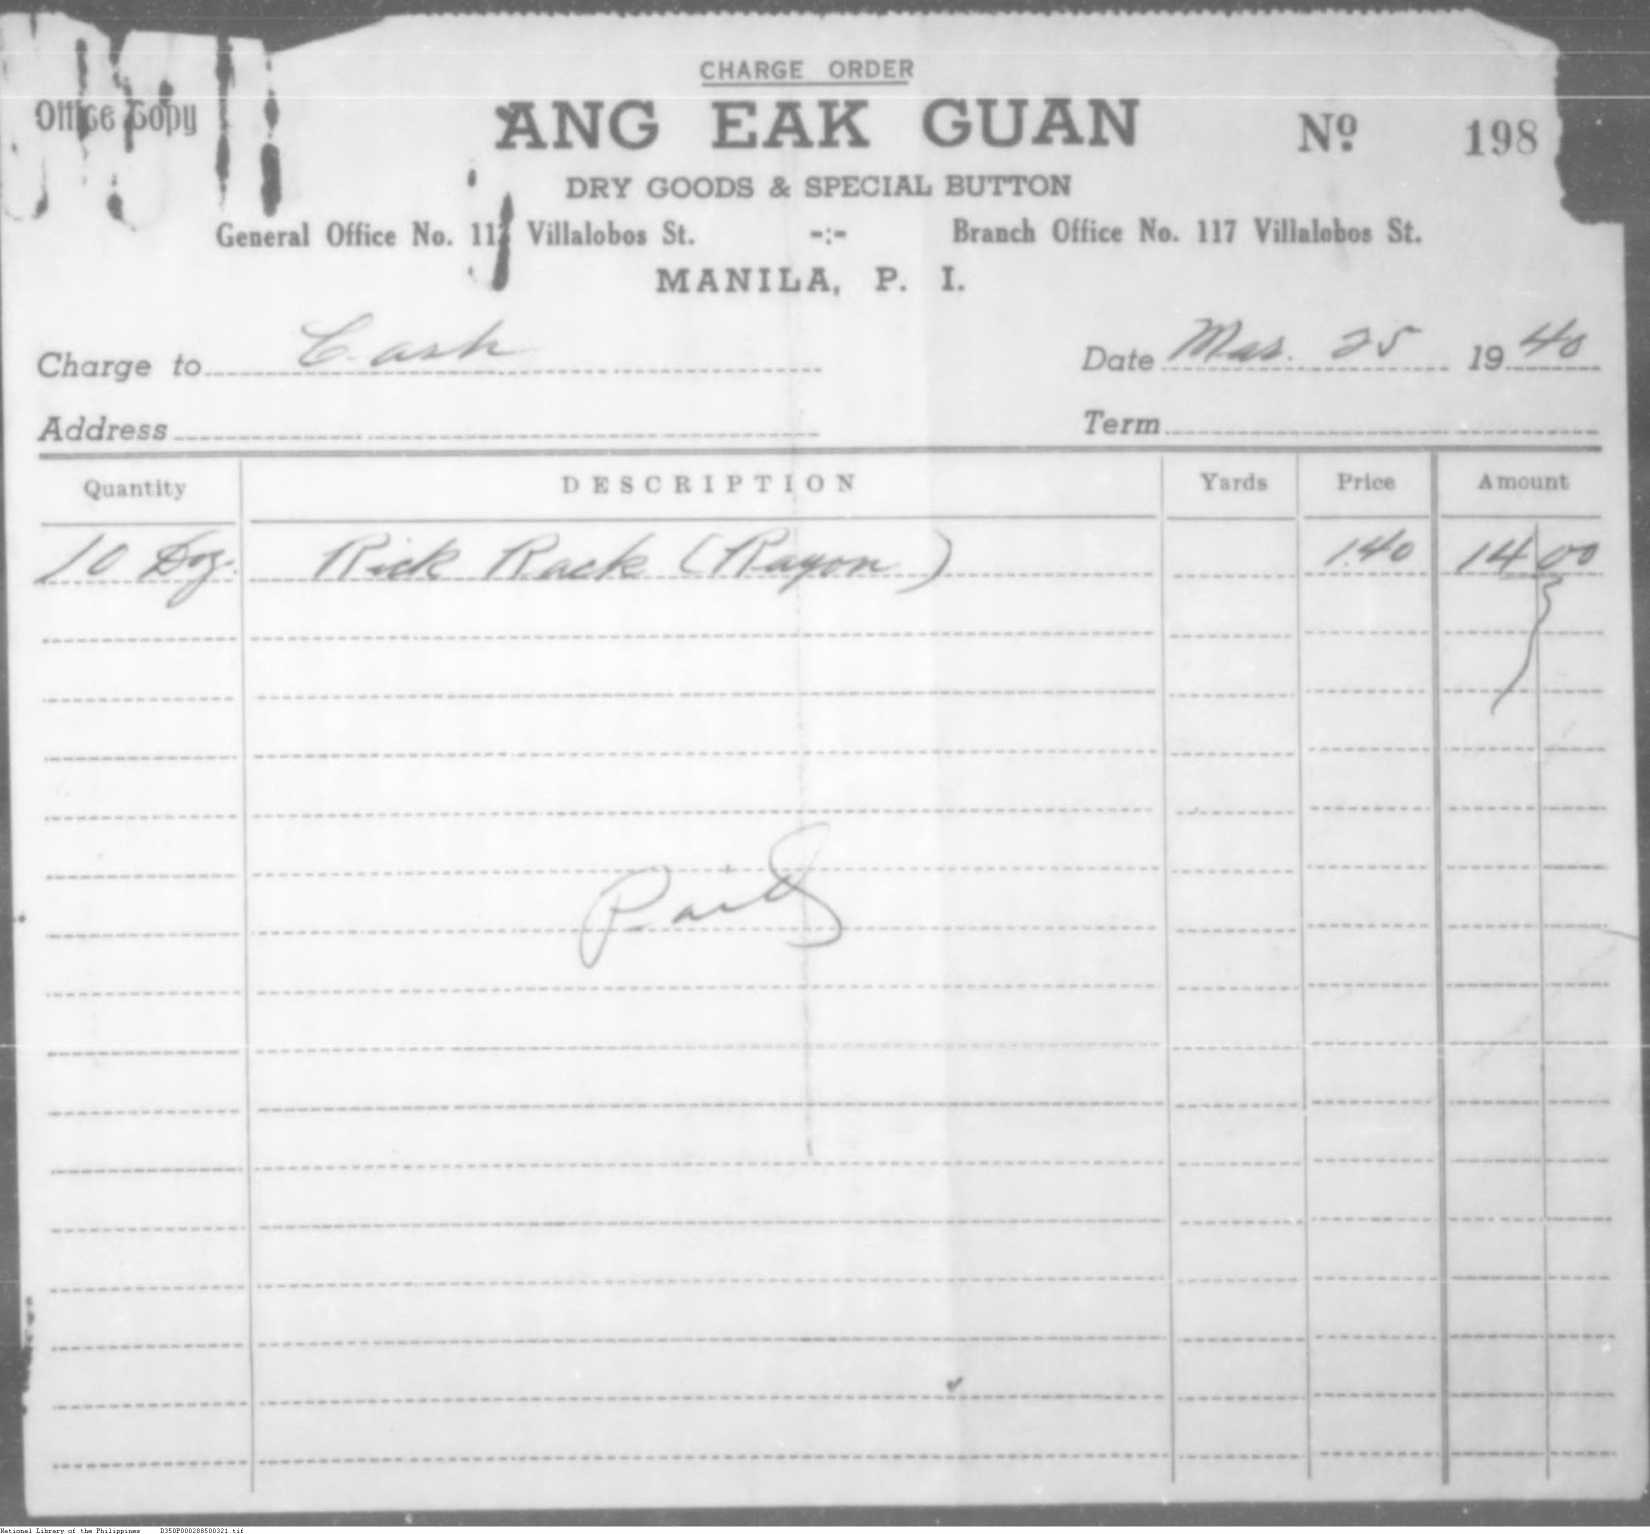 CHARGE ORDER
Office Copy
ANG EAK GUAN
Nº 198
DRY GOODS & SPECIAL BUTTON
General Office No. Villalobos St. -:- Branch Office No. 117 Villalobos St.
MANILA, P. I.
Charge to Cash Date Mar. 25 1940
Address Term
Quantity DESCRIPTION Yards Price Amount
10 Doz. Rick Rack (Rayon) 1.40 14 00
Paid
National Library of the Philippines D350P000288500321.tif